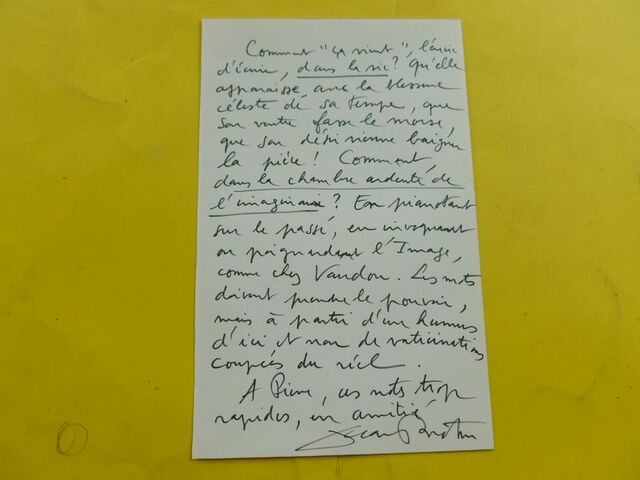 Comment "ça vient", l'envie
d'écrire, dans la vie? Qu'elle
apparaisse avec la blessure
céleste de sa tempe, que
son ventre fasse le morse,
que son désir vienne baigner
la pièce! Comment,
dans la chambre ardente de
l'imaginaire? En pianotant
sur le passé, en invoquant
ou poignardant l'Image,
comme chez Vaudou. Les mots
doivent prendre le pouvoir,
mais à partir d'un humus
d'ici et non de vaticinations
coupées du réel.
A Pierre, ces mots trop
rapides, en amitié
Jean